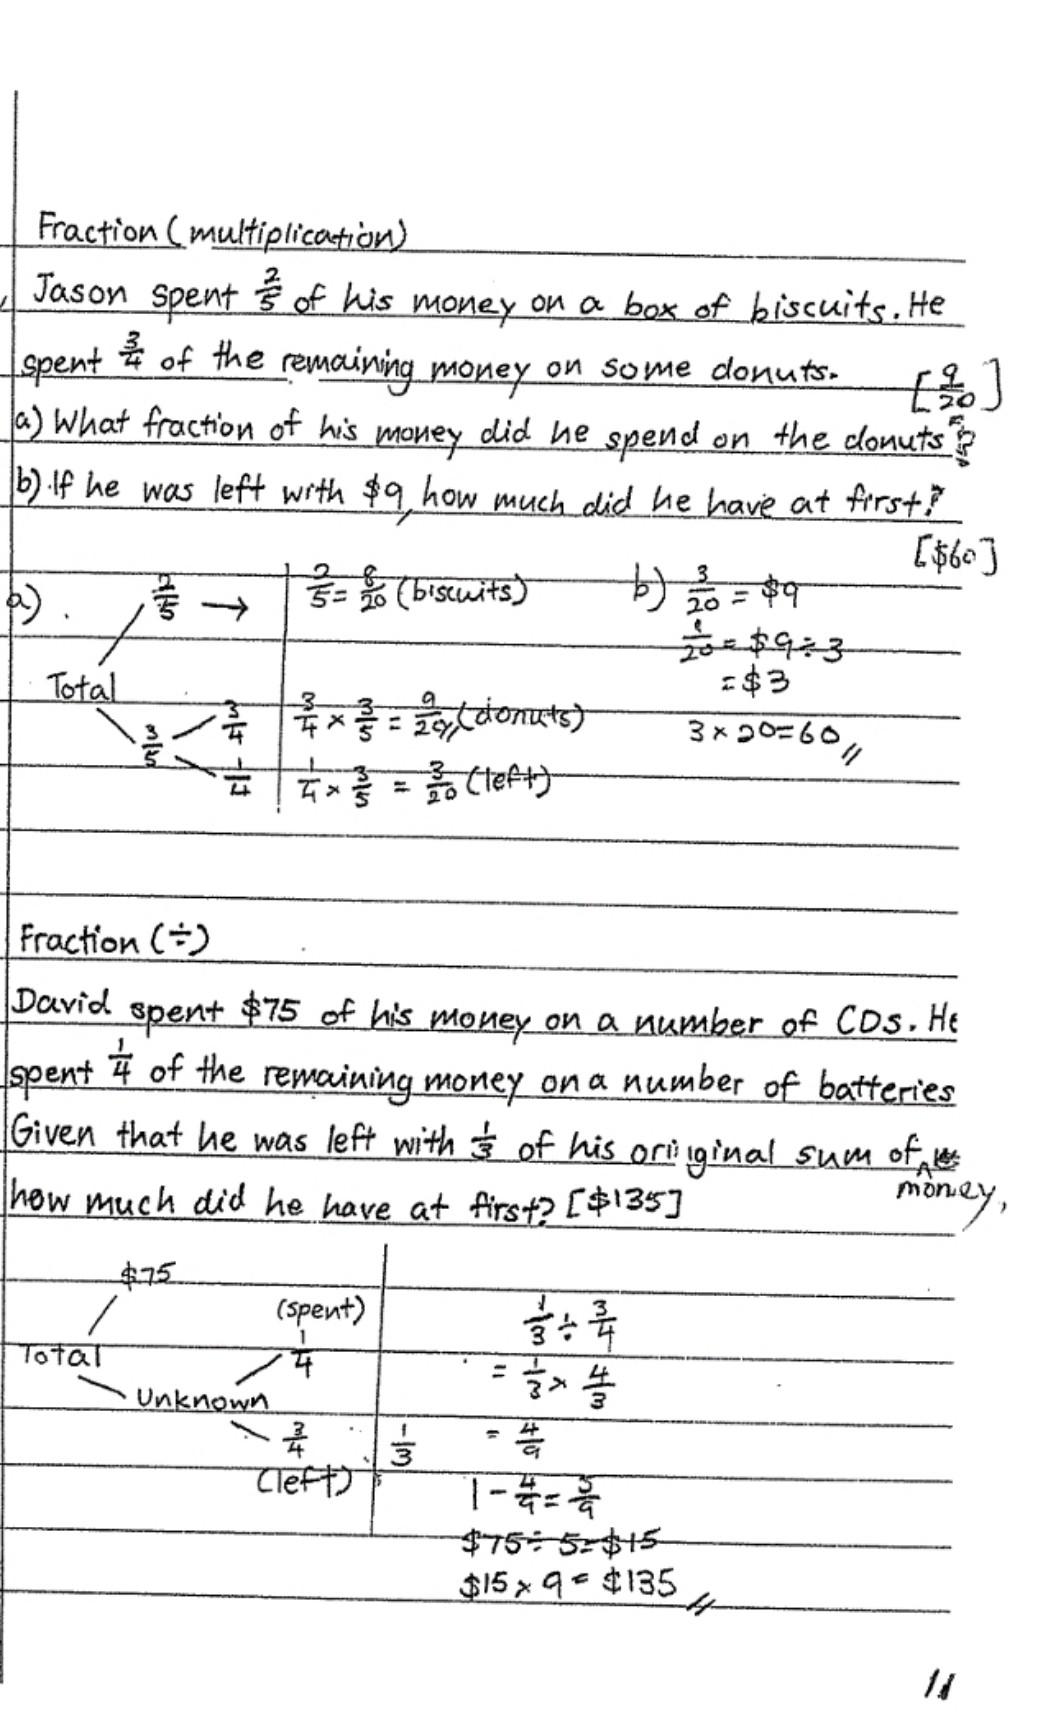 Fraction (multiplication)
Jason spent 2/5 of his money on a box of biscuits. He
spent 3/4 of the remaining money on some donuts.
[9/20]
a) What fraction of his money did he spend on the donuts?
b) If he was left with $9, how much did he have at first?
[$60]
a)
2/5 → 2/5 = 8/20 (biscuits)
Total
3/5 3/4 3/4 × 3/5 = 9/20 (donuts)
1/4 1/4 × 3/5 = 3/20 (left)
b) 3/20 = $9
1/20 = $9 ÷ 3
= $3
3 × 20 = 60
Fraction (÷)
David spent $75 of his money on a number of CDs. He
spent 1/4 of the remaining money on a number of batteries
Given that he was left with 1/3 of his original sum of
money,
how much did he have at first? [$135]
$75
(spent)
1/4
Total
Unknown
3/4 1/3
(left)
1/3 ÷ 3/4
= 1/3 × 4/3
= 4/9
1 - 4/9 = 5/9
$75 ÷ 5 = $15
$15 × 9 = $135
11